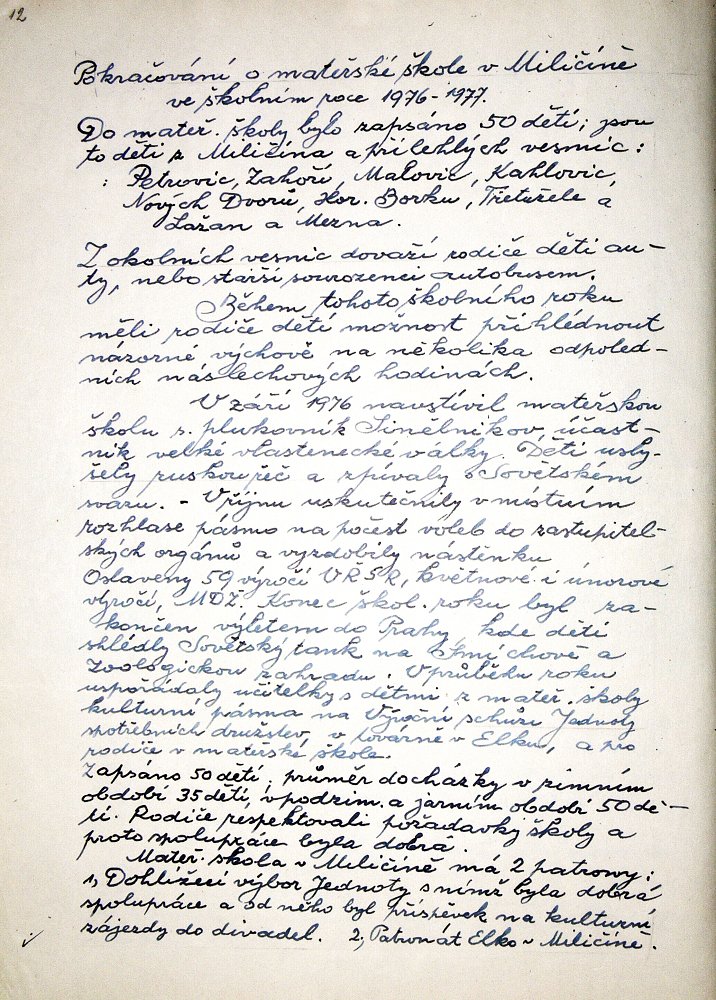 12
Pokračování o mateřské škole v Miličíně
ve školním roce 1976-1977.
Do mateř. školy bylo zapsáno 50 dětí; jsou
to děti z Miličína a přilehlých vesnic:
: Petrovic, Zahoří, Malovic, Kahlovic,
Nových Dvorů, Hor. Borku, Třetužele a
Lažan a Mezna.
Z okolních vesnic dovaží rodiče děti au-
ty, nebo starší sourozenci autobusem.
Během tohoto školního roku
měli rodiče dětí možnost přihlédnout
názorné výchově na několika odpoled-
ních náslechových hodinách.
V září 1976 navštívil mateřskou
školu s. plukovník Sinělnikov, účast-
ník velké vlastenecké války. Děti usly-
šely ruskou řeč a zpívaly o Sovětském
svazu. - V říjnu uskutečnily v místním
rozhlase pásmo na počest voleb do zastupitel-
ských orgánů a vyzdobily nástěnku
Oslaveny 59 výročí VŘSR, květnové i únorové
výročí, MDŽ. Konec škol. roku byl za-
končen výletem do Prahy, kde děti
shlédly Sovětský tank na Smíchově a
Zoologickou zahradu. V průběhu roku
uspořádaly učitelky s dětmi z mateř. školy
kulturní pásma na Výroční schůzi Jednoty
spotřebních družstev, v továrně v Elku, a pro
rodiče v mateřské škole.
Zapsáno 50 dětí, průměr docházky v zimním
období 35 dětí, v podzim. a jarním období 50 dě-
tí. Rodiče respektovali požadavky školy a
proto spolupráce byla dobrá.
Mateř. škola v Miličíně má 2 patrony:
1, Dohlížecí výbor Jednoty s nímž byla dobrá
spolupráce a od něho byl příspěvek na kulturní
zájezdy do divadel. 2, Patronát Elko v Miličíně.